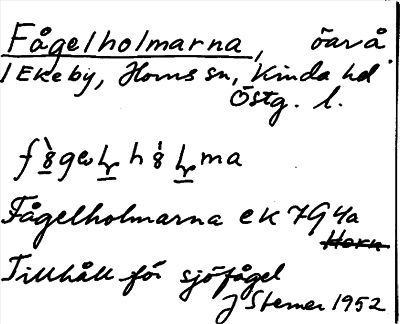 Fågelholmarna, öar å
/ Ekeby, Horns sn, Kinda hd
Östg. l.
Fågelholmarna ek 7G4a
Horn
Tillhåll för sjöfågel
J Sterner 1952